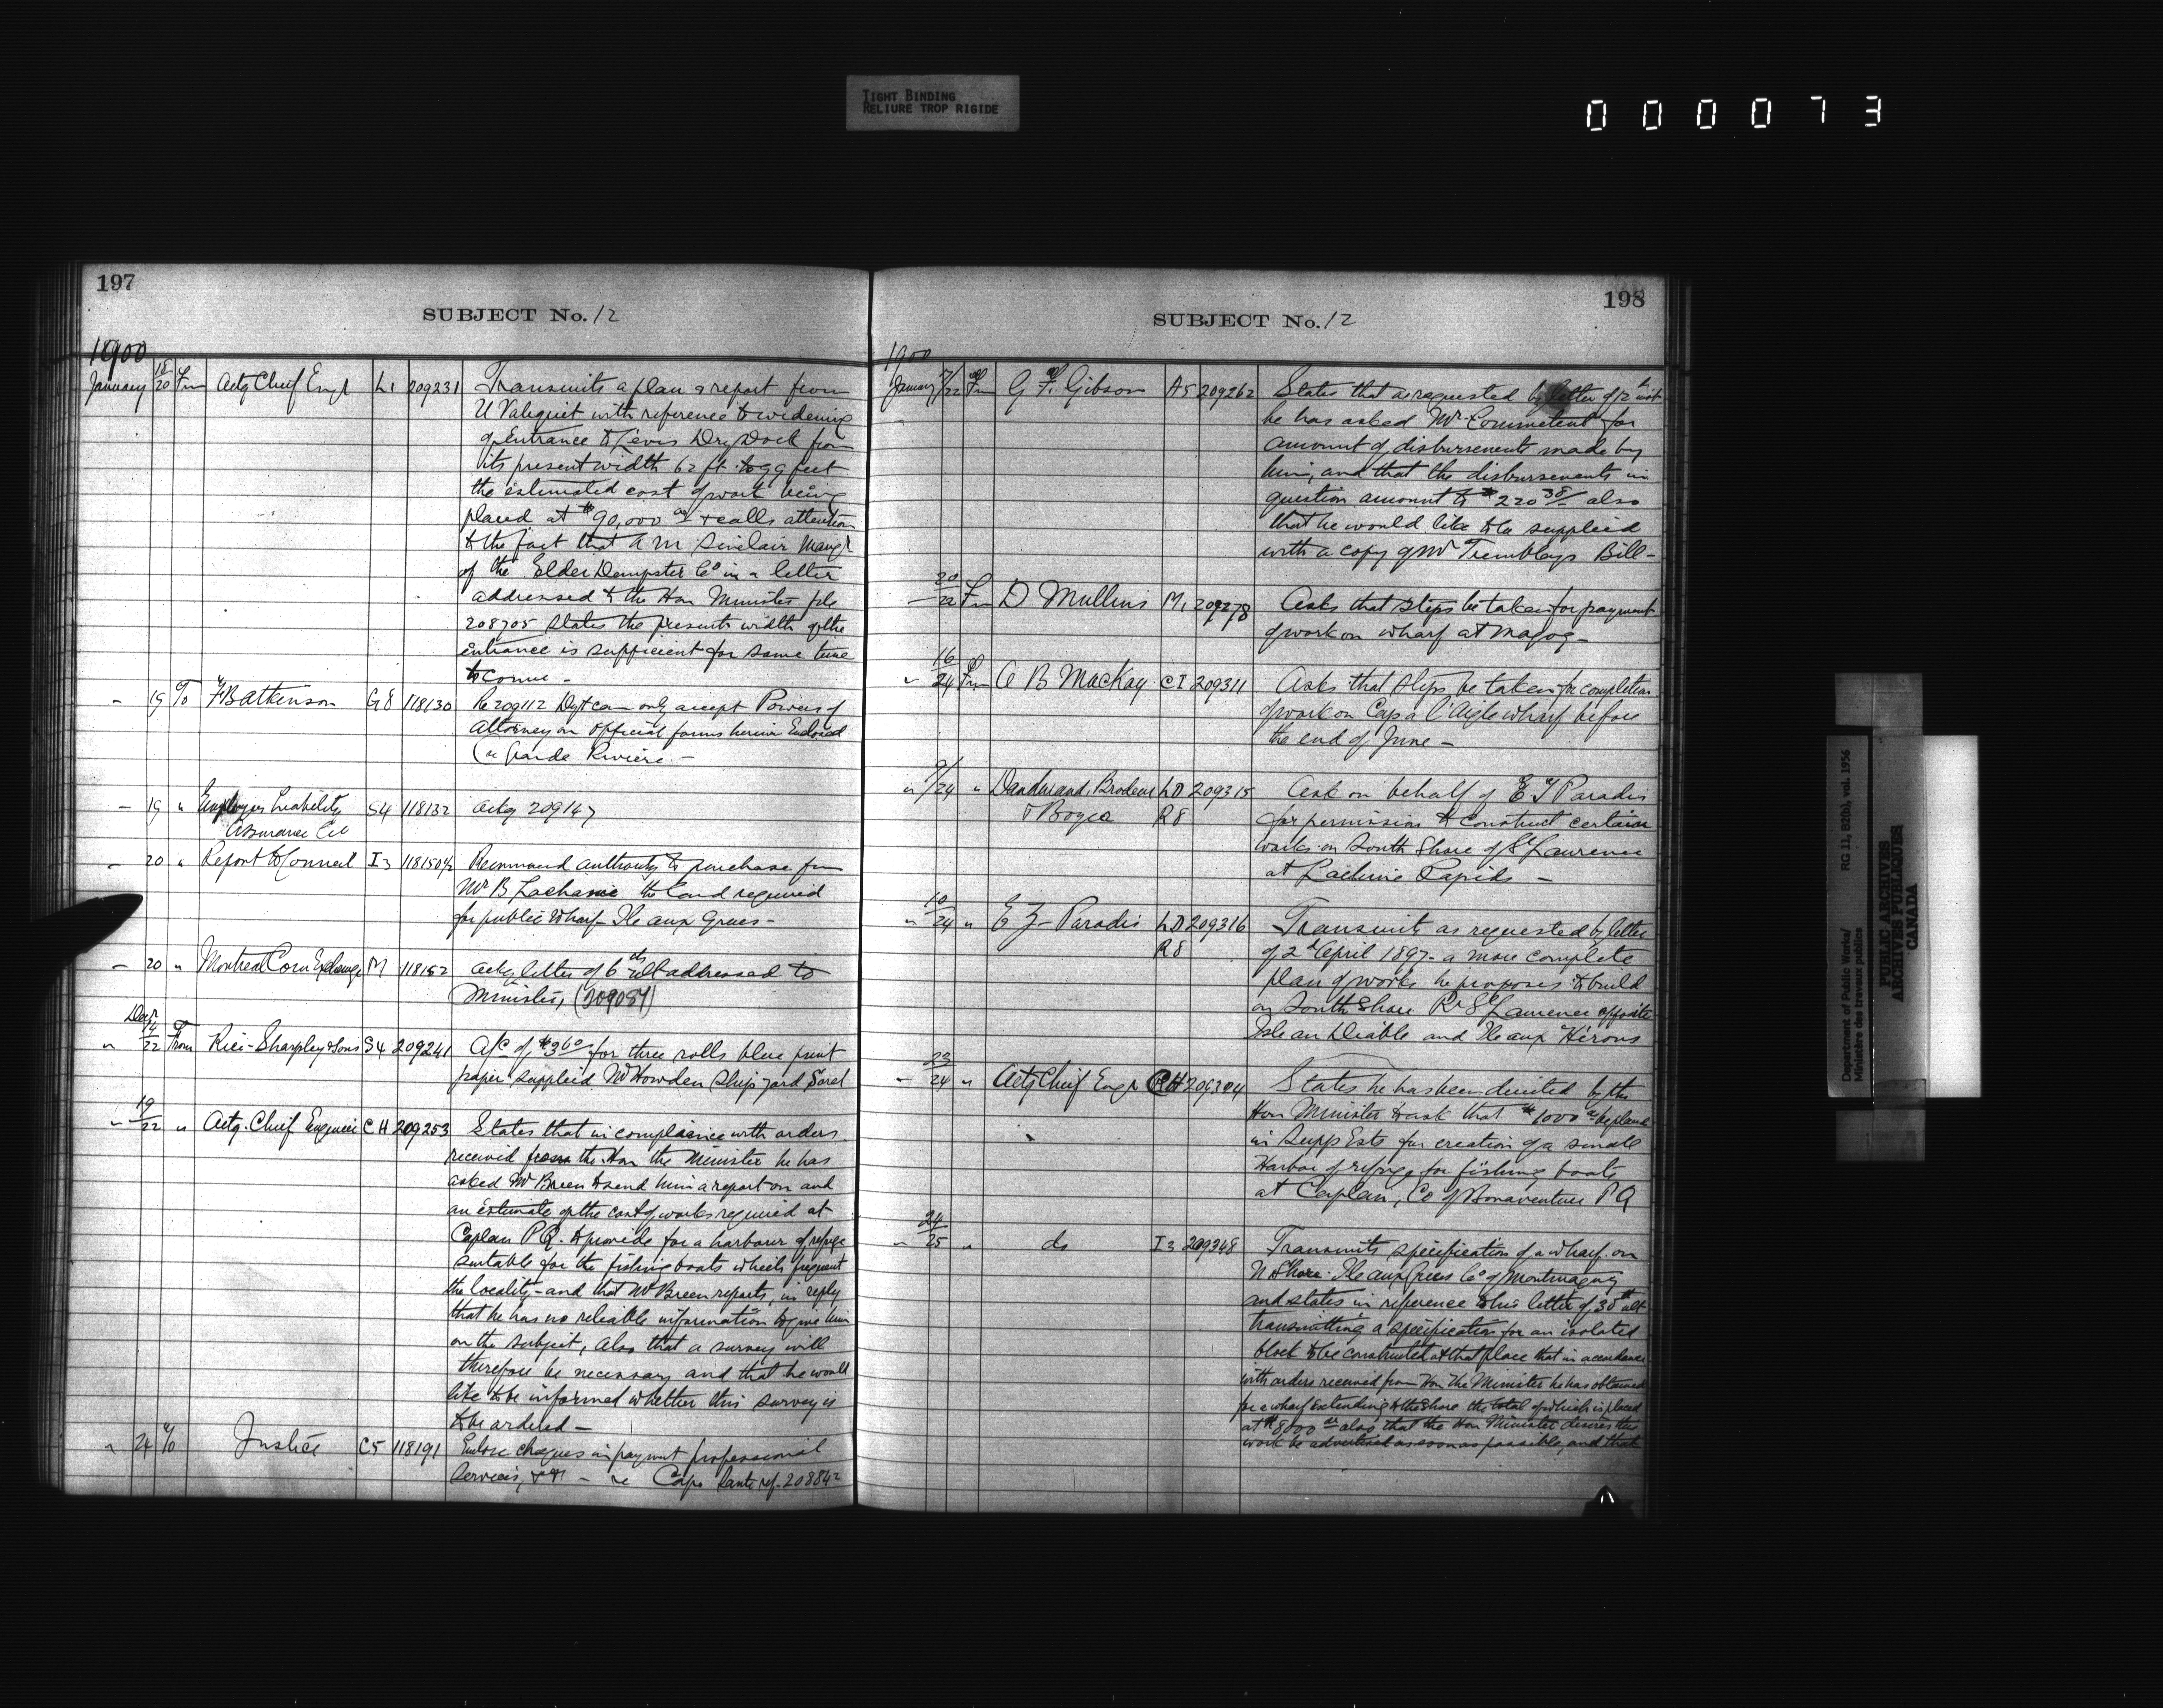 TIGHT BINDING
RELIURE TROP RIGIDE
000073
197
SUBJECT No. 12
1900
January 18/20 Fm Actg Chief Engr L1 209231 Transmits a plan & report from
U Valiquet with reference to widening
of Entrance to Levis Dry Dock from
its present width 62 ft to 99 feet
the estimated cost of work being
placed at $90,000 00 & calls attention
to the fact that A M Sinclair Mangr
of the Elder Dempster Co in a letter
addressed to the Hon Minister file
208705 States the present width of the
entrance is sufficient for some time
to come -
- 19 To F B Atkinson G8 118130 Re 209112 Dept can only accept Powers of
Attorney on official forms herein Enclosed
(re Grande Riviere -
- 19 " Employers Liability S4 118132 ackg 209147
Assurance Co
- 20 " Report to Council I3 118150 1/2 Recommend authority to purchase from
Mr B Lachance the land required
for public wharf Ile aux Grues -
- 20 " Montreal Corn Exchange M 118152 ackg letter of 6 ult addressed to
Minister, (209084)
Decr
" 14/22 From Rice-Sharpley & Sons S4 209241 A/c of $3 60 for three rolls blue print
paper supplied Mr Howden Ship yard Sorel
" 19/22 " Actg. Chief Engineer CH 209253 States that in compliance with orders
received from the Hon the Minister he has
asked Mr Breen to send him a report on and
an estimate of the cost of works required at
Caplan PQ. to provide for a harbour of refuge
suitable for the fishing boats which frequent
the locality - and that Mr Breen reports, in reply
that he has no reliable information to give him
on the subject, also that a survey will
therefore be necessary and that he would
like to be informed whether this survey is
to be ordered -
" 24 To Justice C5 118191 Enclose cheques in payment professional
Services, - re Cape ref. 208842
198
SUBJECT No. 12
1900
January 17/22 Fm G F. Gibson A5 209262 States that as requested by letter of 12 inst
he has asked Mr Commetent for
amount of disbursements made by
him, and that the disbursements in
question amount to $220 38/ also
that he would like to be supplied
with a copy of Mr Tremblays Bill -
- 20/22 Fm D Mullins M1 209278 Asks that steps be taken for payment
of work on wharf at Magog -
" 16/24 Fm A B MacKay CI 209311 Asks that steps be taken for completion
of work on Cap a l'Aigle wharf before
the end of June -
" 9/24 " Dandurand, Brodeur LD 209315 Ask on behalf of E Z Paradis
& Boyer R8 for permission to construct certain
works on South Shore of St Laurence
at Lachine Rapids -
" 10/24 " E Z - Paradis LD 209316 Transmits as requested by letter
R8 of 2d April 1897 - a more complete
plan of works he proposes to build
on South Shore R St Laurence opposite
Isle au Diable and Ile aux Hérons
- 23/24 " Actg Chief Engr CH 209304 States he has been directed by the
Hon Minister to ask that $1000 00 be placed
in Supp Ests for creation of a small
Harbor of refuge for fishing boats
at Caplan, Co of Bonaventure PQ
- 24/25 " do I3 209348 Transmits specification of a wharf on
N Shore Ile aux Grues Co of Montmagny
and states in reference to his letter of 30th ult
transmitting a specification for an isolated
block to be constructed at that place that in accordance
with orders received from Hon the Minister he has obtained
for a wharf extending to the shore the total of which is placed
at $8000 00 also that the Hon Minister desires this
work be advertised as soon as possible, and that
Department of Public Works/ RG 11, B2(b), vol. 1956
Ministère des travaux publics
PUBLIC ARCHIVES
ARCHIVES PUBLIQUES
CANADA